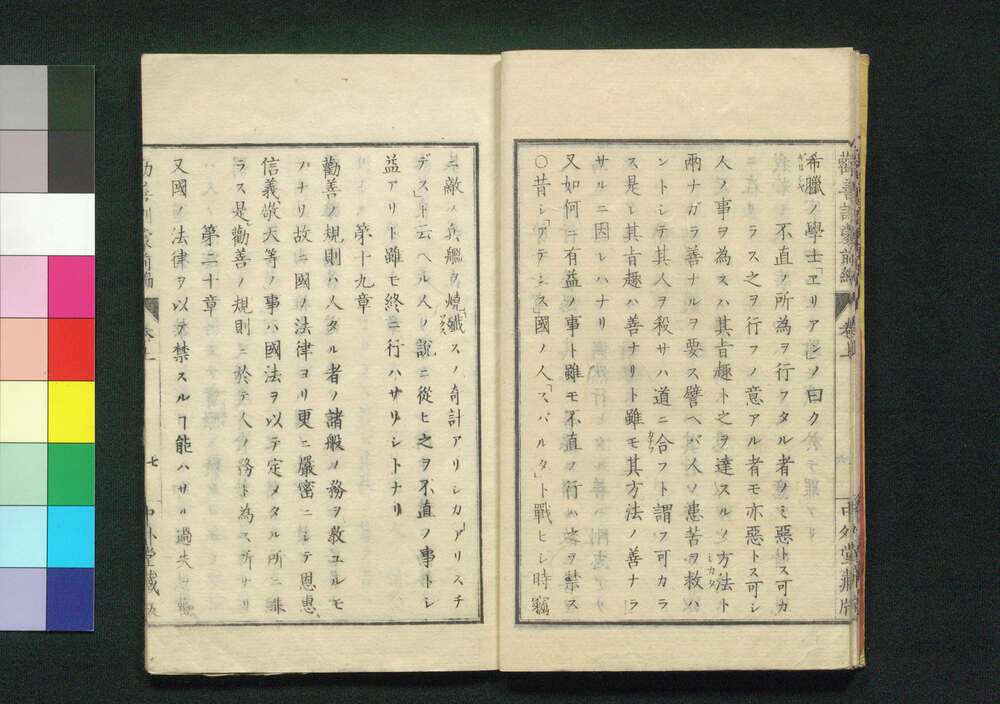 勸善訓蒙前編 卷上 六 中外堂藏版
希臘ノ學士「エリアン」ノ曰ク
不直ノ所為ヲ行フタル者ノミ惡トス可カ
ラス之ヲ行フノ意アル者モ亦惡トス可シ
人ノ事ヲ為スハ其旨趣ト之ヲ達スルノ方法ト
兩ナガラ善ナルヲ要ス譬ヘバ人ノ患苦ヲ救ハ
ントシテ其人ヲ殺サハ道ニ合フト謂フ可カラ
ス是レ其旨趣ハ善ナリト雖モ其方法ノ善ナラ
サルニ因レハナリ
又如何ニ有益ノ事ト雖モ不直ノ行ハ之ヲ禁ス
○昔シ「アテンス」國ノ人「スパルタ」ト戰ヒシ時竊
ニ敵ノ兵艦ヲ燒殱スノ奇計アリシカ「アリスチ
デス」ト云ヘル人ノ說ニ從ヒ之ヲ不直ノ事トシ
益アリト雖モ終ニ行ハサリシトナリ
第十九章
勸善ノ規則ハ人タル者ノ諸般ノ務ヲ敎ユルモ
ノナリ故ニ國ノ法律ヨリ更ニ嚴密ニシテ恩惠
信義敬天等ノ事ハ國法ヲ以テ定メタル所ニ非
ラス是勸善ノ規則ニ於テ人ノ務ト為ス所ナリ
第二十章
又國ノ法律ヲ以テ禁スルヿ能ハサル過失
勸善訓蒙前編 卷上 七 中外堂藏